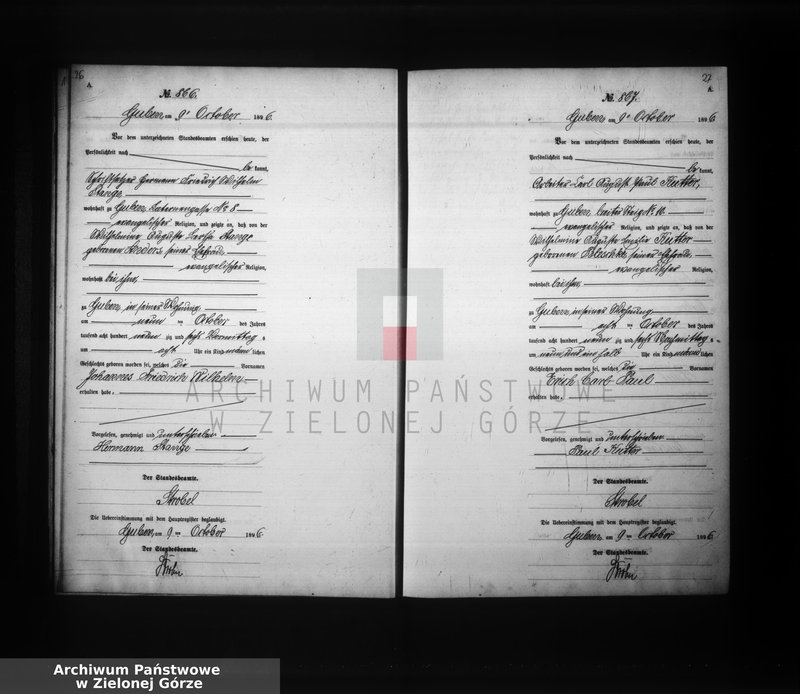 26
A.
№ 866.
Guben, am 9. October 1896.
Vor dem unterzeichneten Standesbeamten erschien heute, der
Persönlichkeit nach
be kannt,
Schriftsetzer Hermann Friedrich Wilhelm
Stange
wohnhaft zu Guben, No 8
evangelischer Religion, und zeigte an, daß von der
Wilhelmine Auguste Stange
geborenen seiner Ehefrau
evangelischer Religion,
wohnhaft bei ihm,
zu Guben, in seiner Wohnung
am neun ten October des Jahres
tausend acht hundert neun zig und sechs Vormittags
um acht Uhr ein Kind männlichen
Geschlechts geboren worden sei, welches die Vornamen
Johannes Friedrich Wilhelm
erhalten habe.
Vorgelesen, genehmigt und unterschrieben
Hermann Stange
Der Standesbeamte.
Strobel
Die Uebereinstimmung mit dem Hauptregister beglaubigt.
Guben, am 9ten October 1896.
Der Standesbeamte.
27
A.
№ 867.
Guben, am 9. October 1896
Vor dem unterzeichneten Standesbeamten erschien heute, der
Persönlichkeit nach
be kannt,
Arbeiter Carl August Paul Kutter,
wohnhaft zu Guben, No 16
evangelischer Religion, und zeigte an, daß von der
Wilhelmine Auguste Kutter
geborenen seiner Ehefrau,
evangelischer Religion,
wohnhaft bei ihm,
zu Guben, in seiner Wohnung
am acht ten October des Jahres
tausend acht hundert neun zig und sechs Nachmittags
um neun und ein halb Uhr ein Kind männlichen
Geschlechts geboren worden sei, welches die Vornamen
Erich Carl Paul
erhalten habe.
Vorgelesen, genehmigt und unterschrieben
Paul Kutter
Der Standesbeamte.
Strobel
Die Uebereinstimmung mit dem Hauptregister beglaubigt.
Guben, am 9ten October 1896
Der Standesbeamte.
ARCHIWUM PAŃSTWOWE
W ZIELONEJ GÓRZE
Archiwum Państwowe
w Zielonej Górze